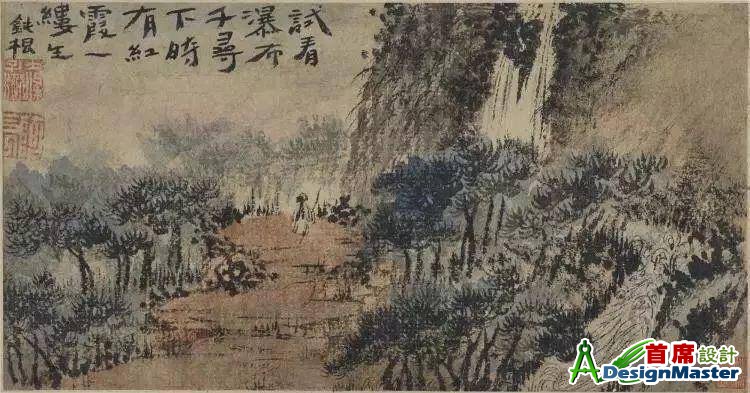 試看
瀑布
千尋
下時
有紅
霞一
縷生
鈍根
首席設計
DesignMaster